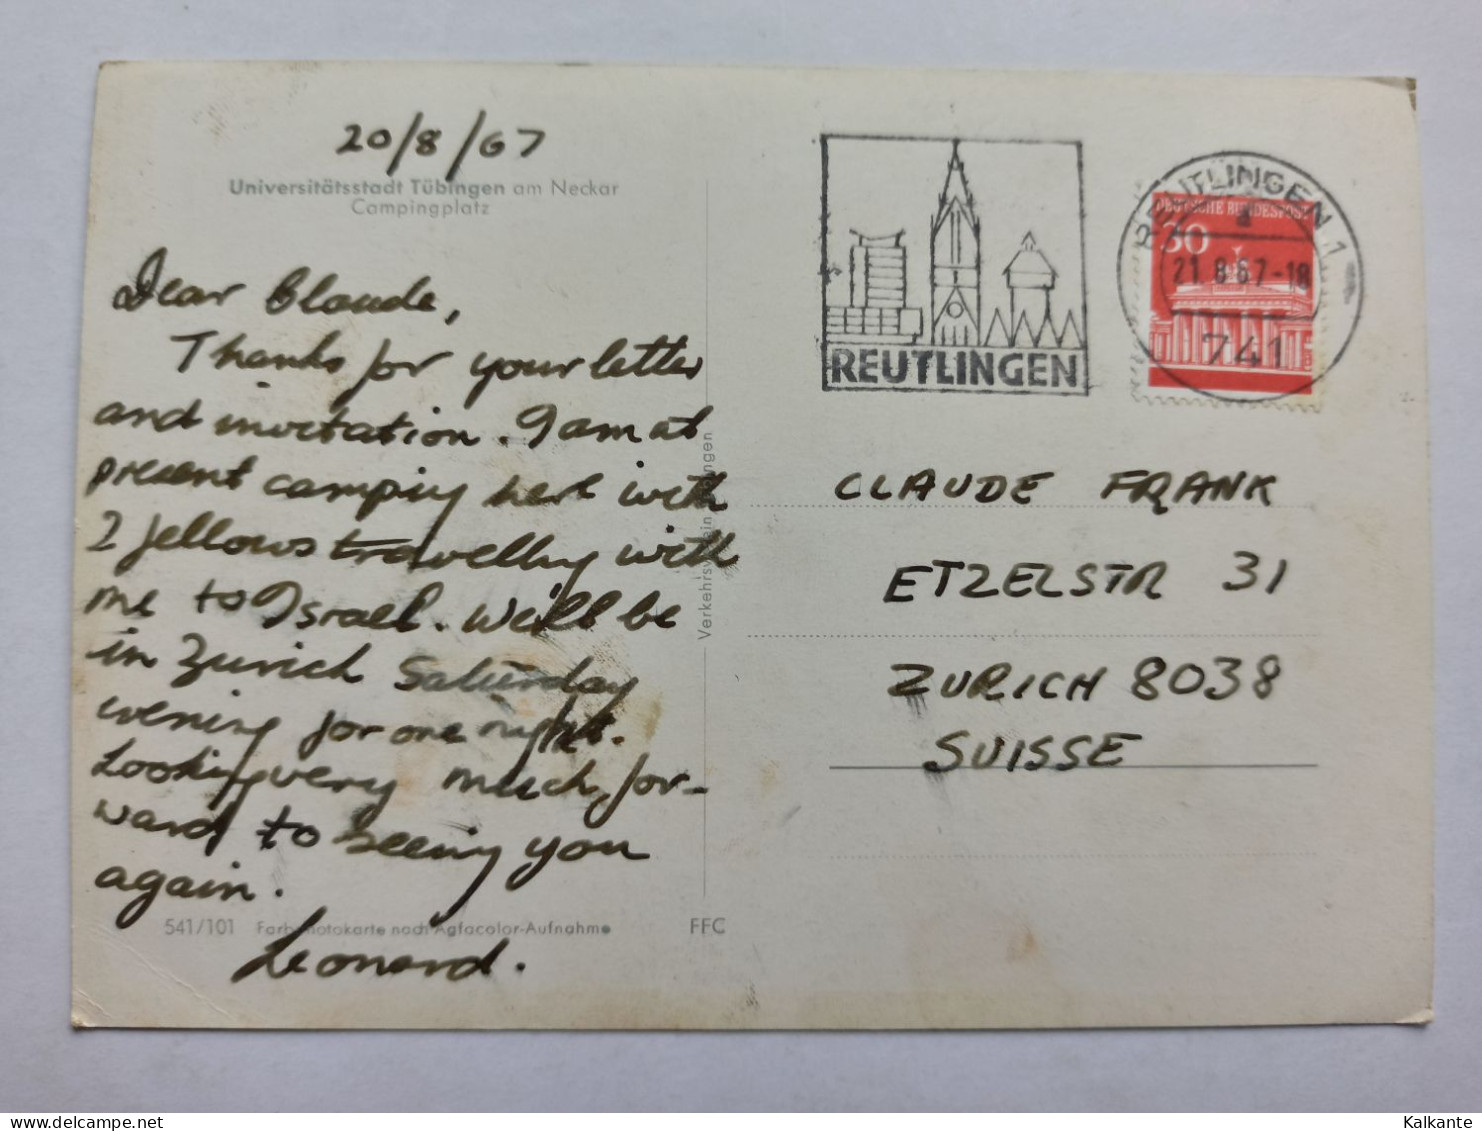 20/8/67
Universitätsstadt Tübingen am Neckar
Campingplatz
Dear Claude,
Thanks for your letter
and invitation. I am at
present camping here with
2 fellows travelling with
me to Israel. We'll be
in Zurich Saturday
evening for one night.
Looking very much for-
ward to seeing you
again.
Leonard.
541/101 Farb-Fotokarte nach Agfacolor-Aufnahme FFC
Verkehrsverein Tübingen
REUTLINGEN
REUTLINGEN 1
a
21.8.67-18
741
DEUTSCHE BUNDESPOST
30
CLAUDE FRANK
ETZELSTR 31
ZURICH 8038
SUISSE
Kalkante